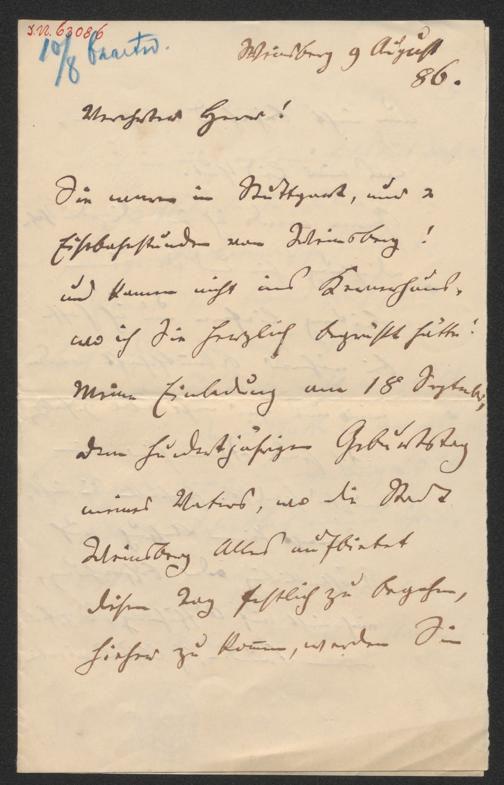 I.N. 63086
10/8 beantw.
Weinsberg 9 August
86.
Verehrter Herr!
Sie waren in Stuttgart, und 2
Eisenbahnstunden von Weinsberg!
und kamen nicht ins Kernerhaus,
wo ich Sie herzlich begrüßt hätte!
Meine Einladung am 18 September,
dem hundertjährigen Geburtstag
meines Vaters, wo die Stadt
Weinsberg Alles aufbietet
diesen Tag festlich zu begehen,
hieher zu kommen, werden Sie